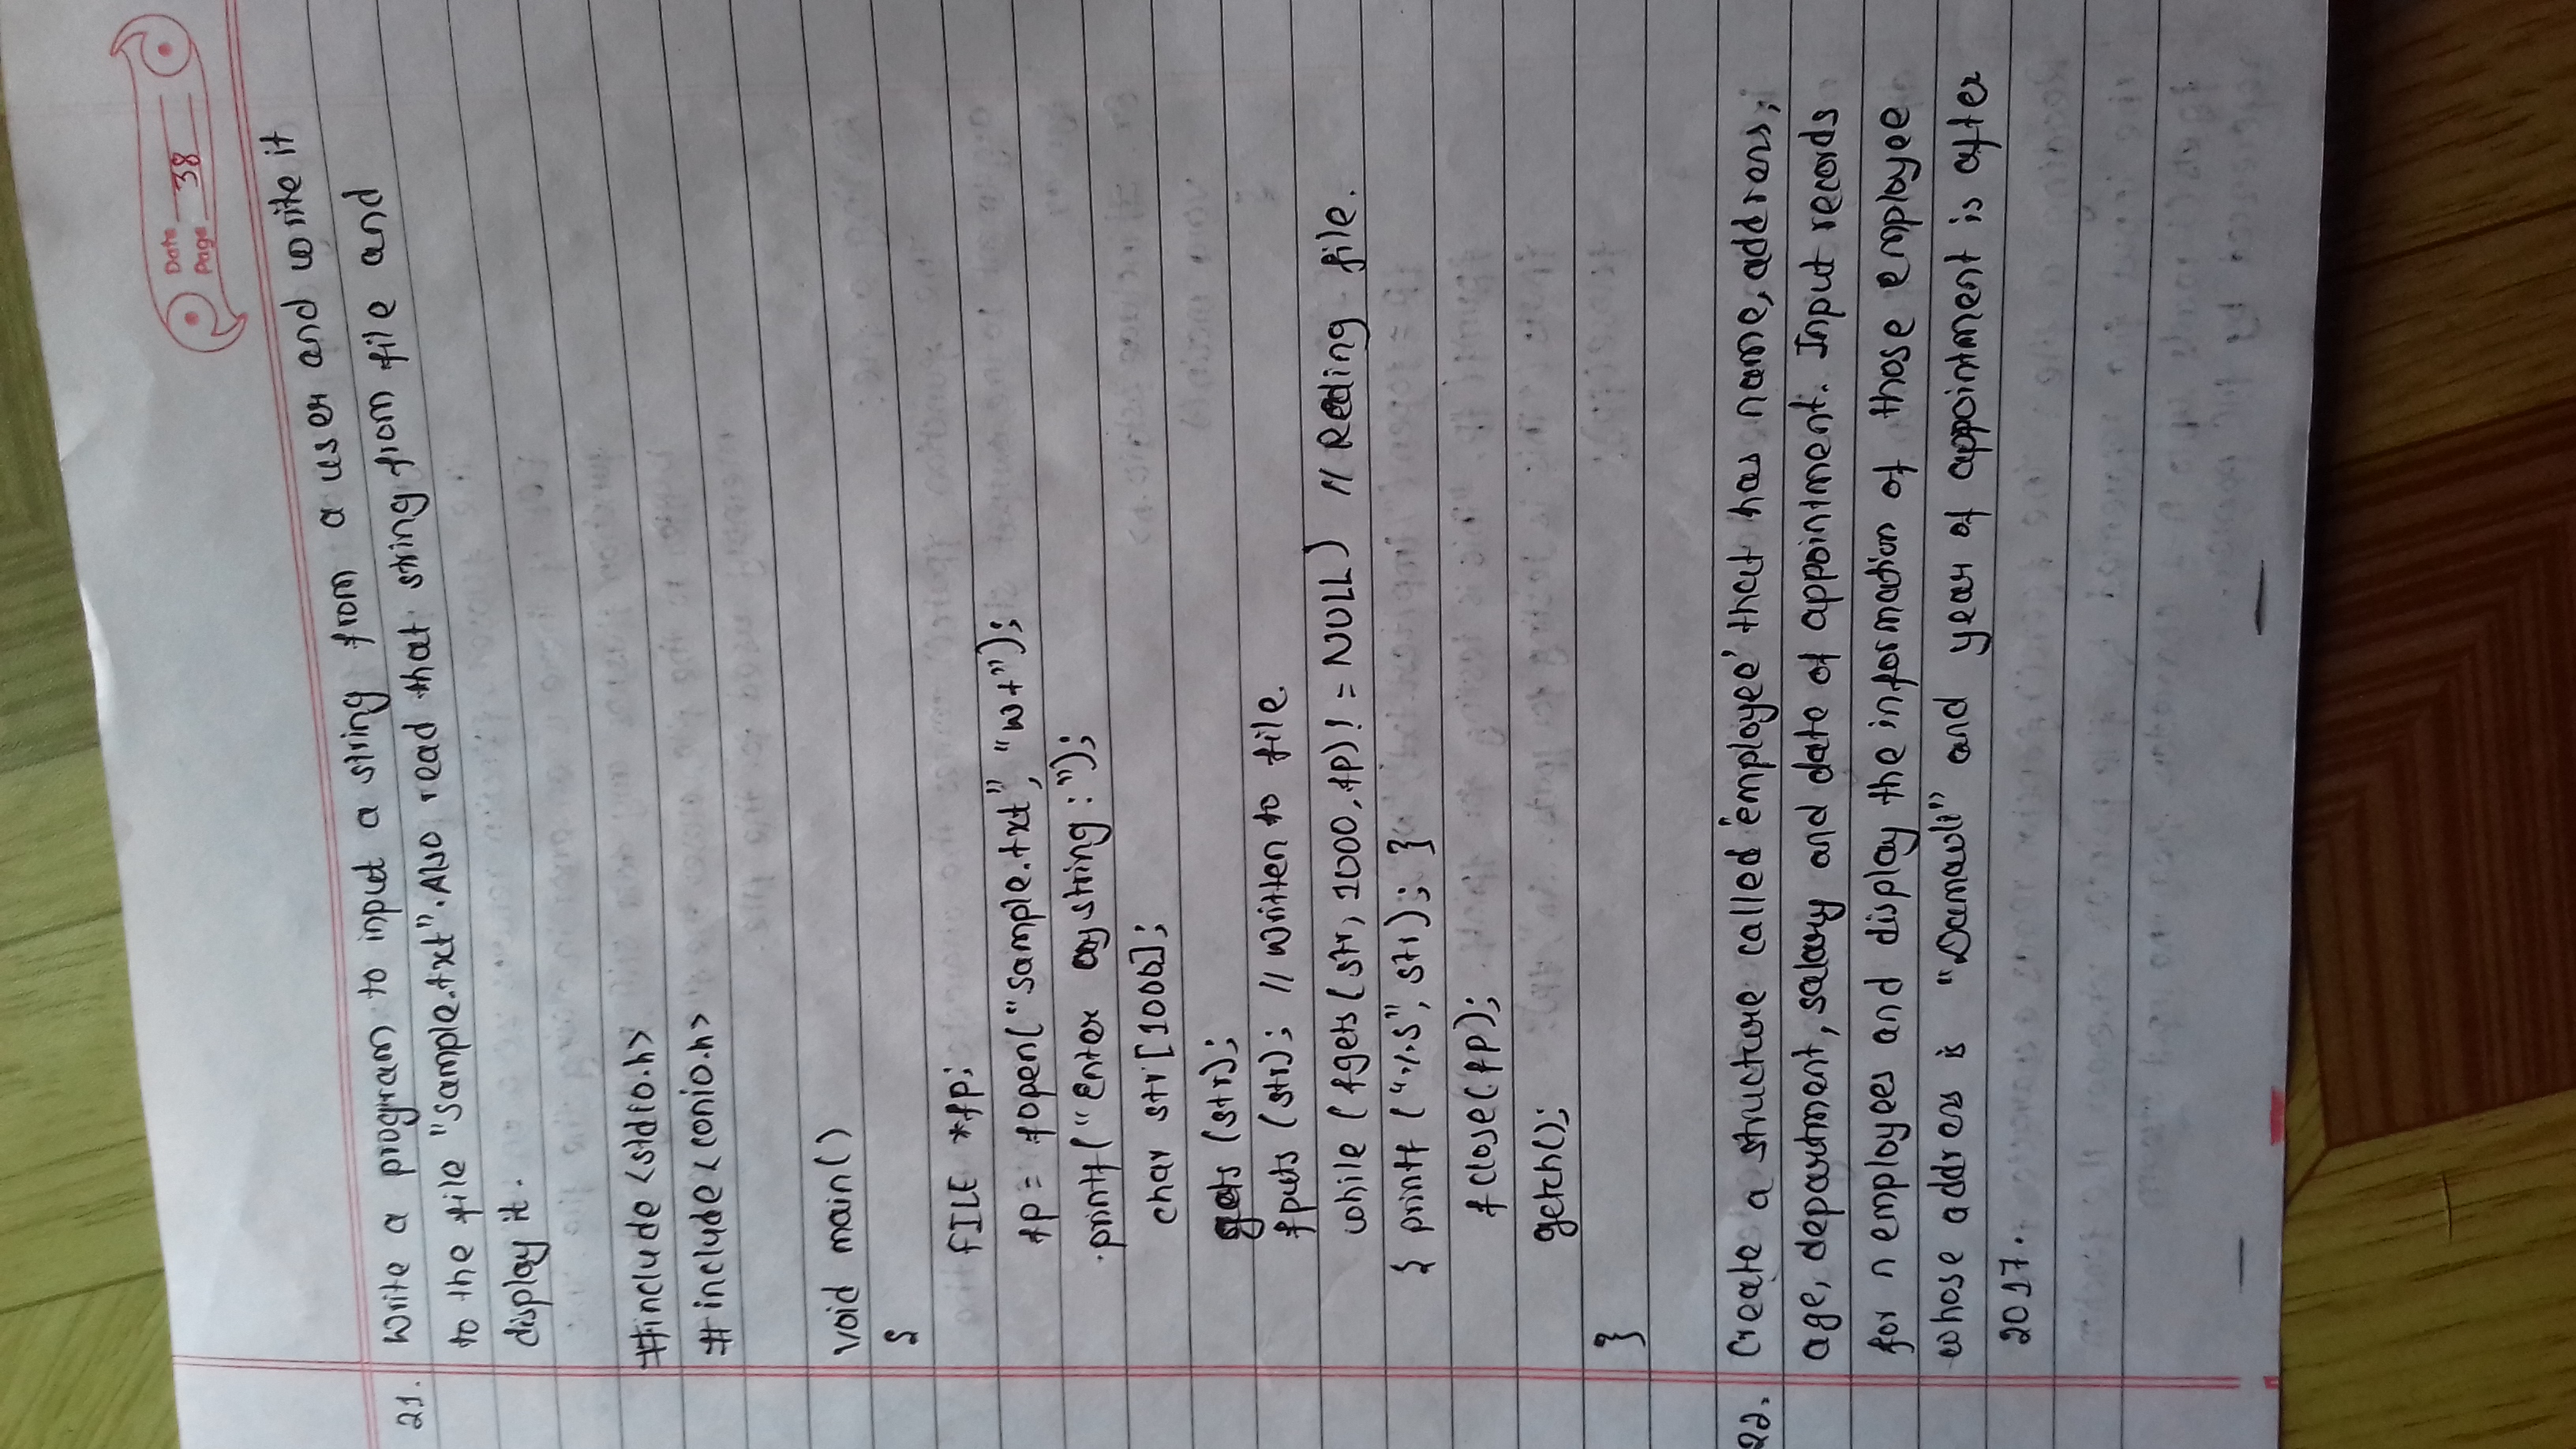 Date
Page 38
21. Write a program to input a string from a user and write it
to the file "sample.txt". Also read that string from file and
display it.
#include <stdio.h>
#include <conio.h>
void main()
{
FILE *fp;
fp = fopen("sample.txt", "w+");
printf("Enter any string : ");
char str[1000];
gets (str);
fputs (str); // Written to file.
while (fgets(str, 1000, fp) != NULL) // Reding file.
{ printf ("%s", str); }
fclose(fp);
getch();
}
22. Create a structure called 'employee' that has name, address,
age, department, salary and date of appointment. Input records
for n employees and display the information of those employee
whose address is "Damauli" and year of appointment is after
2017.